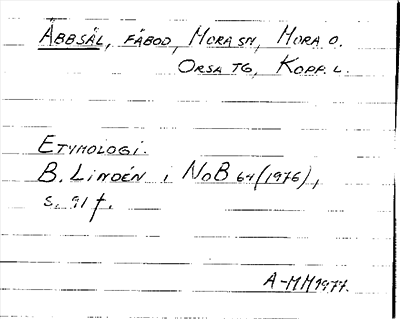 Åbbsål, fäbod, Mora sn, Mora o.
Orsa tg, Kopp. l.
Etymologi.
B. Lindén i NoB 64 (1976),
s. 91 f.
A-MH 1977.